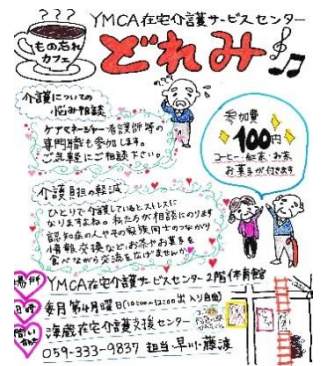 ???
YMCA在宅介護サービスセンター
もの忘れ
カフェ
どれみ
介護についての
悩み相談
ケアマネージャー・看護師等の
専門職も参加します。
ご気軽にご相談下さい。
参加費
100円
コーヒー・紅茶・お茶
お菓子が付きます
介護負担の軽減
ひとりで介護しているとストレスに
なりますよね。私たちが相談にのります
認知症の人やその家族同士のつながり
情報交換など、お茶やお菓子を
食べながら交流を広げませんか
場所 YMCA在宅介護サービスセンター 2階(体育館
日時 毎月第4月曜日(10:00~12:00出入り自由)
問い 海蔵在宅介護支援センター
059-333-9837 担当・早川・藤波